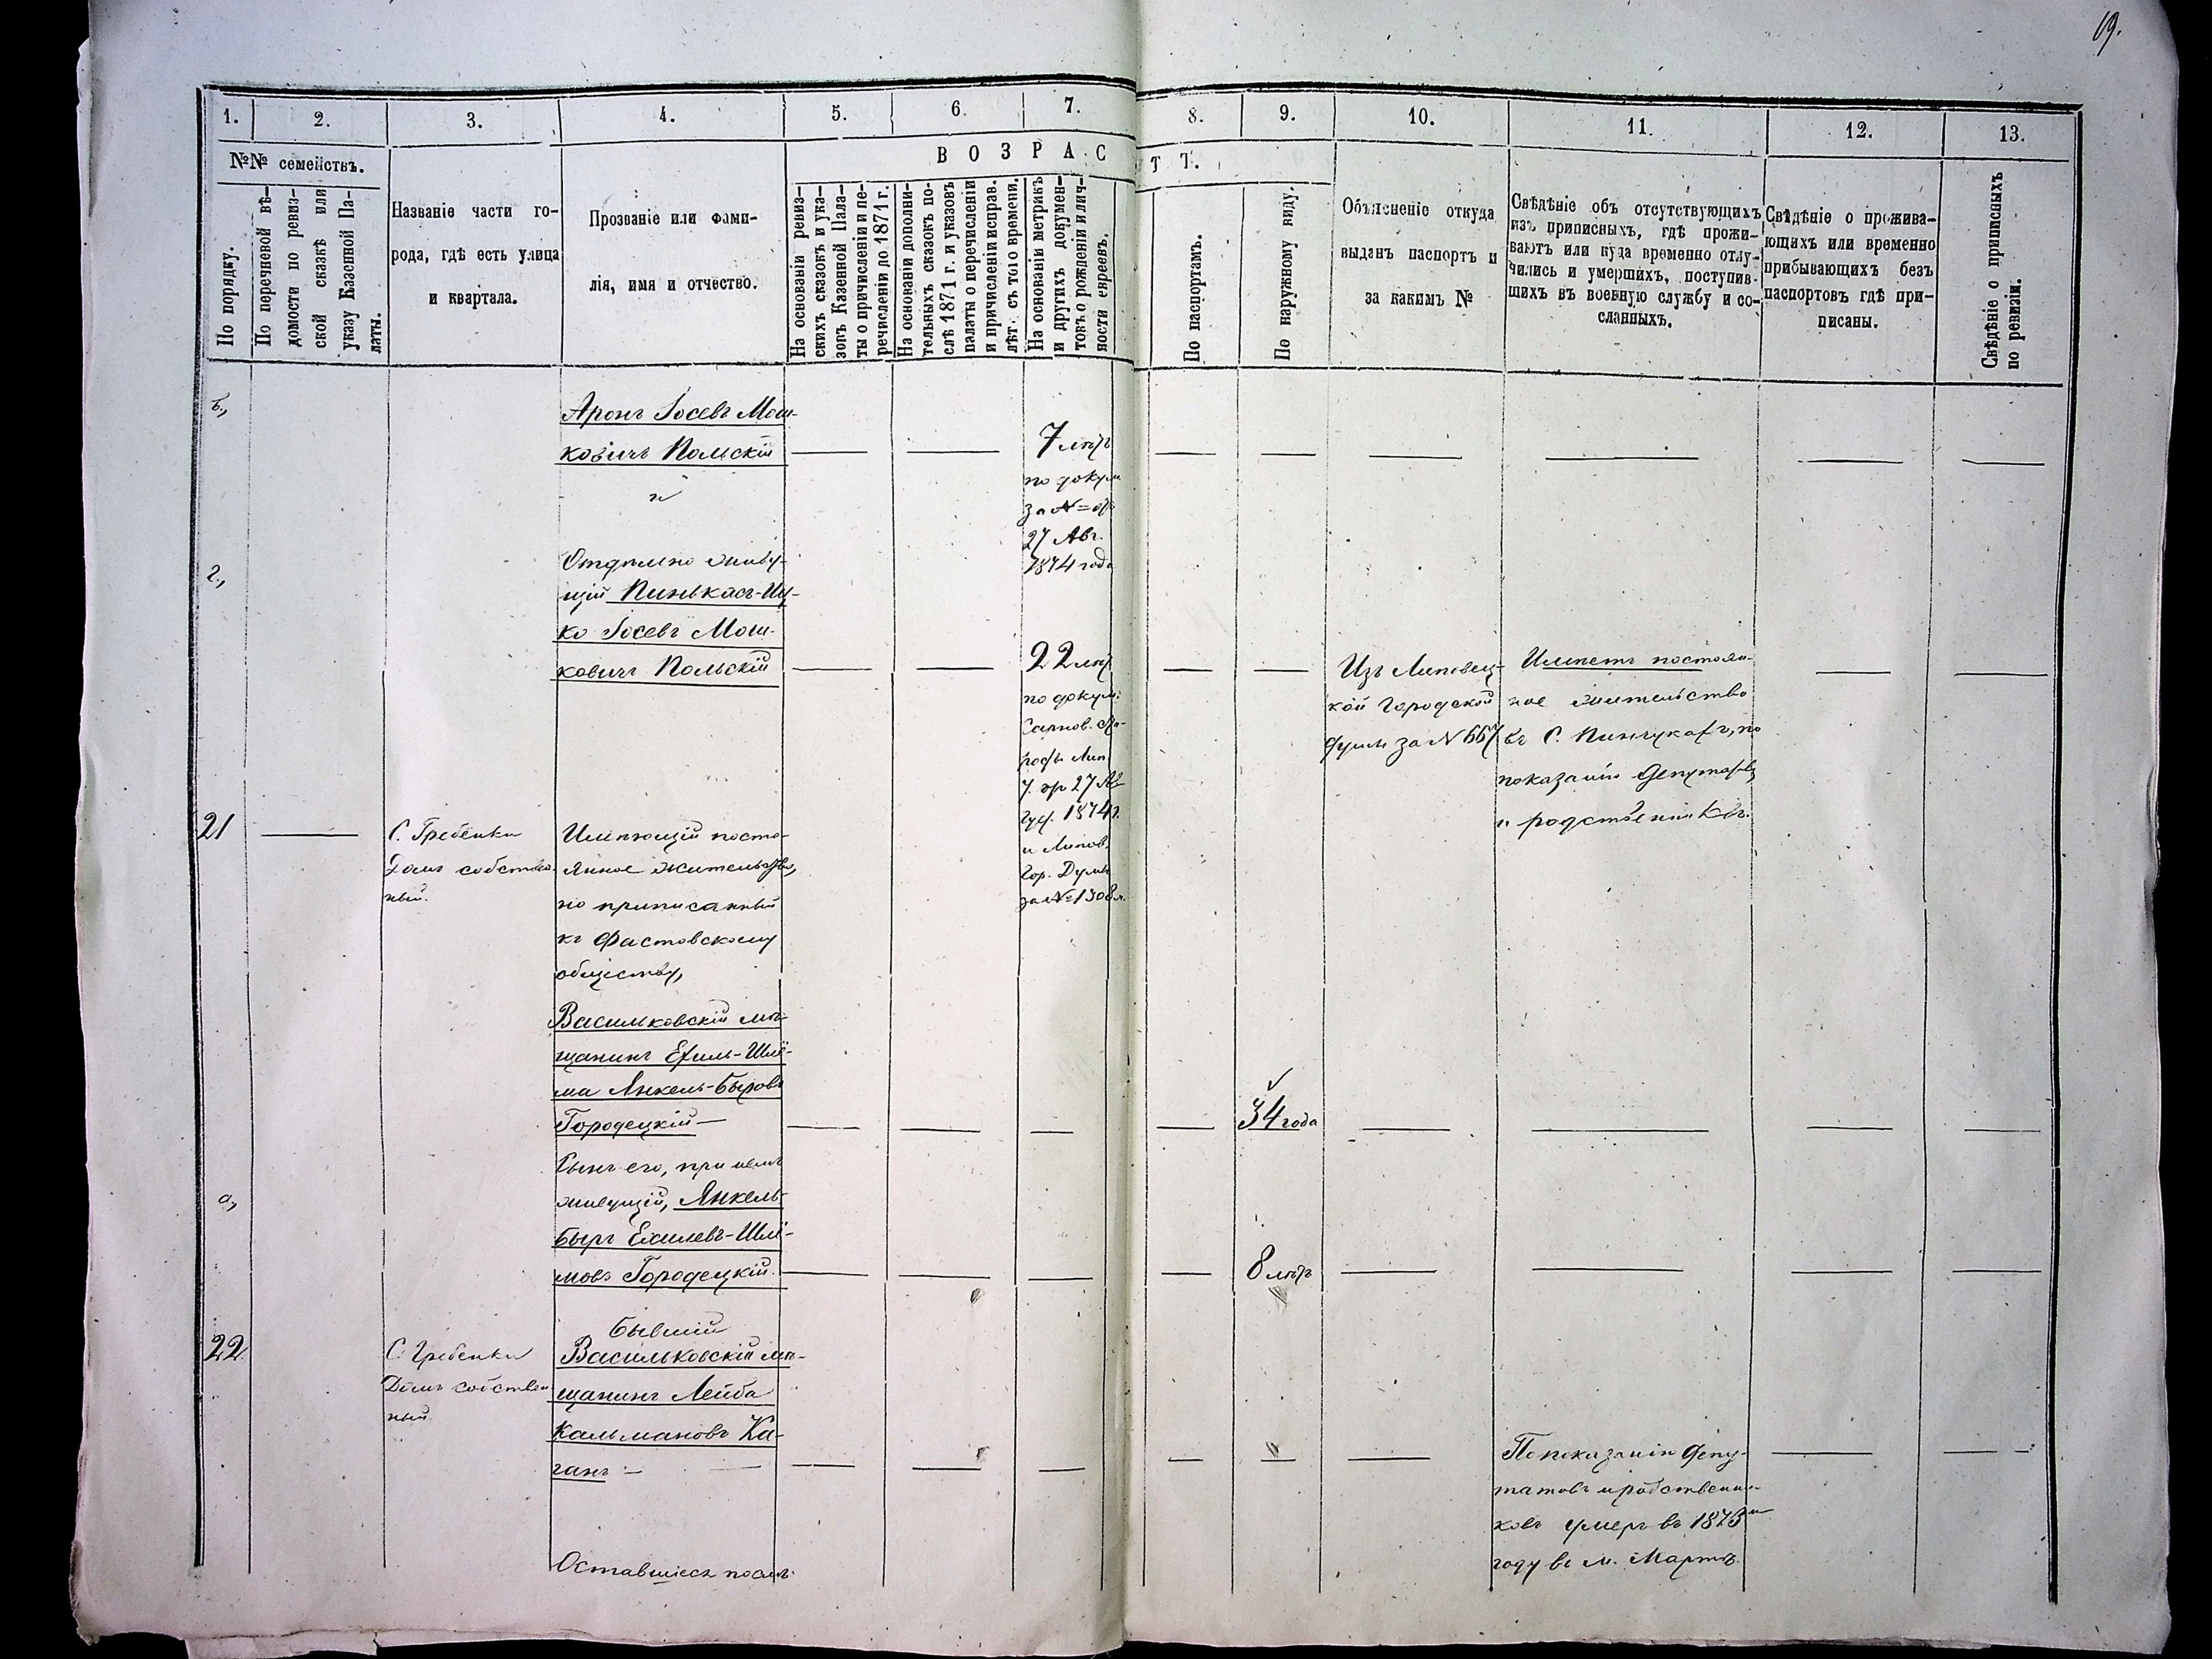 19.
1. 2. 3. 4. 5. 6. 7. 8. 9. 10. 11. 12. 13.
№№ семействъ.
ВОЗРАСТТ.
По порядку.
По перечневой вѣ-
домости по ревиз-
ской сказкѣ или
указу Казенной Па-
латы.
Названіе части го-
рода, гдѣ есть улица
и квартала.
Прозваніе или фами-
лія, имя и отчество.
На основаніи ревиз-
скихъ сказокъ и ука-
зовъ Казенной Пала-
ты о причисленіи и пе-
речисленіи до 1871 г.
На основаніи дополни-
тельныхъ сказокъ по-
слѣ 1871 г. и указовъ
палаты о перечисленіи
и причисленіи исправ.
лѣт. съ того времени.
На основаніи метрикъ
и другихъ докумен-
товъ о рожденіи и лич-
ности евреевъ.
По паспортамъ.
По наружному виду.
Объясненіе откуда
выданъ паспортъ и
за какимъ №
Свѣдѣніе объ отсутствующихъ
изъ приписныхъ, гдѣ прожи-
ваютъ или куда временно отлу-
чились и умершихъ, поступив-
шихъ въ военную службу и со-
сланныхъ.
Свѣдѣніе о прожива-
ющихъ или временно
прибывающихъ безъ
паспортовъ гдѣ при-
писаны.
Свѣдѣніе о приписныхъ
по ревизіи.
Аронъ Іосевъ Мош-
ковичъ Польскій
и
7 лѣтъ
по докум
за №
27 Авг.
1874 года
г,
Отдѣльно живу-
щій Пинькасъ-Иц-
ко Іосевъ Мош-
ковичъ Польскій
22 лѣт
по докум.
27 Ав
гус. 1874 г.
и Липов.
Гор. Думы
за № 1308
Изъ Липовец-
кой Городской
Думы за № 667
Имѣетъ постоян-
ное жительство
въ С. Пинчукахъ, по
показанію Депутатовъ
и родственниковъ.
21
С. Гребенки
Домъ собствен-
ный.
Имѣющій посто-
янное жительство,
но приписанный
къ Фастовскому
обществу,
Васильковскій мѣ-
щанинъ Ехиль-Шлё-
ма Янкель-Быровъ
Городецкій —
34 года
а,
Сынъ его, при немъ
живущій, Янкель-
Быръ Ехилевъ-Шлё-
мовъ Городецкій.
8 лѣтъ
22.
С. Гребенки
Домъ собствен
ный.
Бывшій
Васильковскій мѣ-
щанинъ Лейба
Кальмановъ Ка-
ганъ —
По показанію Депу-
татовъ и родственни-
ковъ умеръ въ 1873 м
году въ м. Мартѣ.
Оставшіеся послѣ